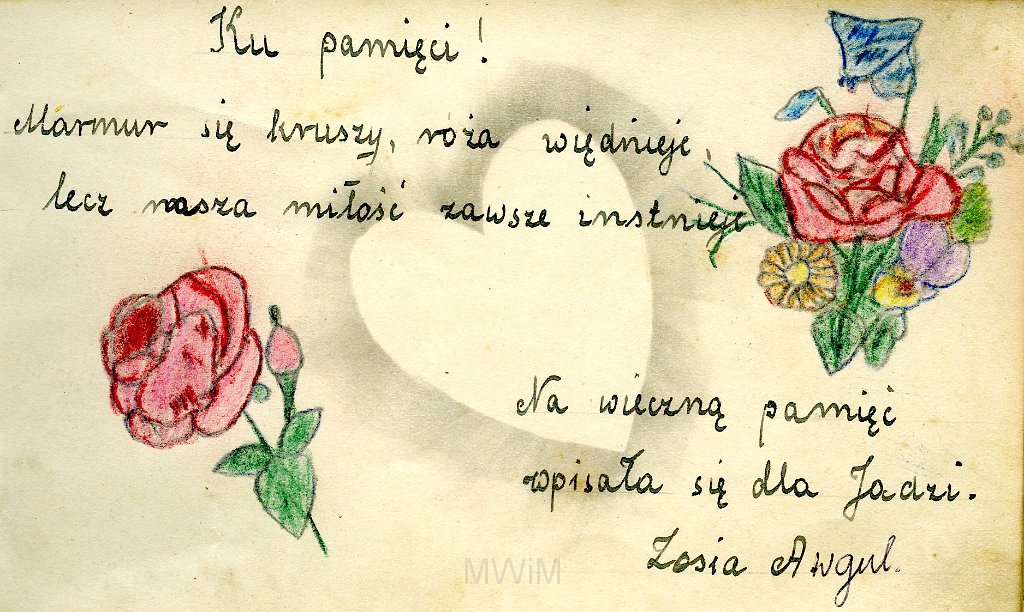 Ku pamięci!
Marmur się kruszy, róża więdnieje,
lecz nasza miłość zawsze instnieje
Na wieczną pamięć
wpisała się dla Jadzi.
Zosia Awgul.
MWiM